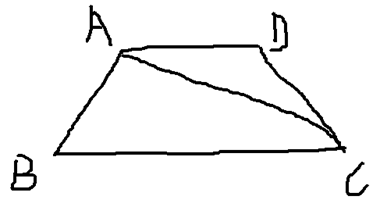 A D
B C